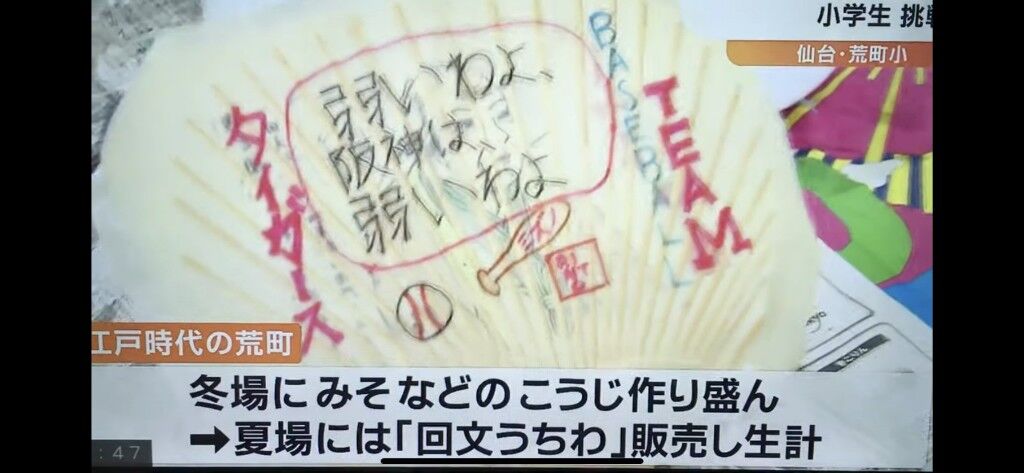 小学生 挑戦
仙台・荒町小
弱いわよ、
阪神は、
弱いわよ
タイガース
BASEBALL
TEAM
ミズノ
江戸時代の荒町
冬場にみそなどのこうじ作り盛ん
➡夏場には「回文うちわ」販売し生計
:47